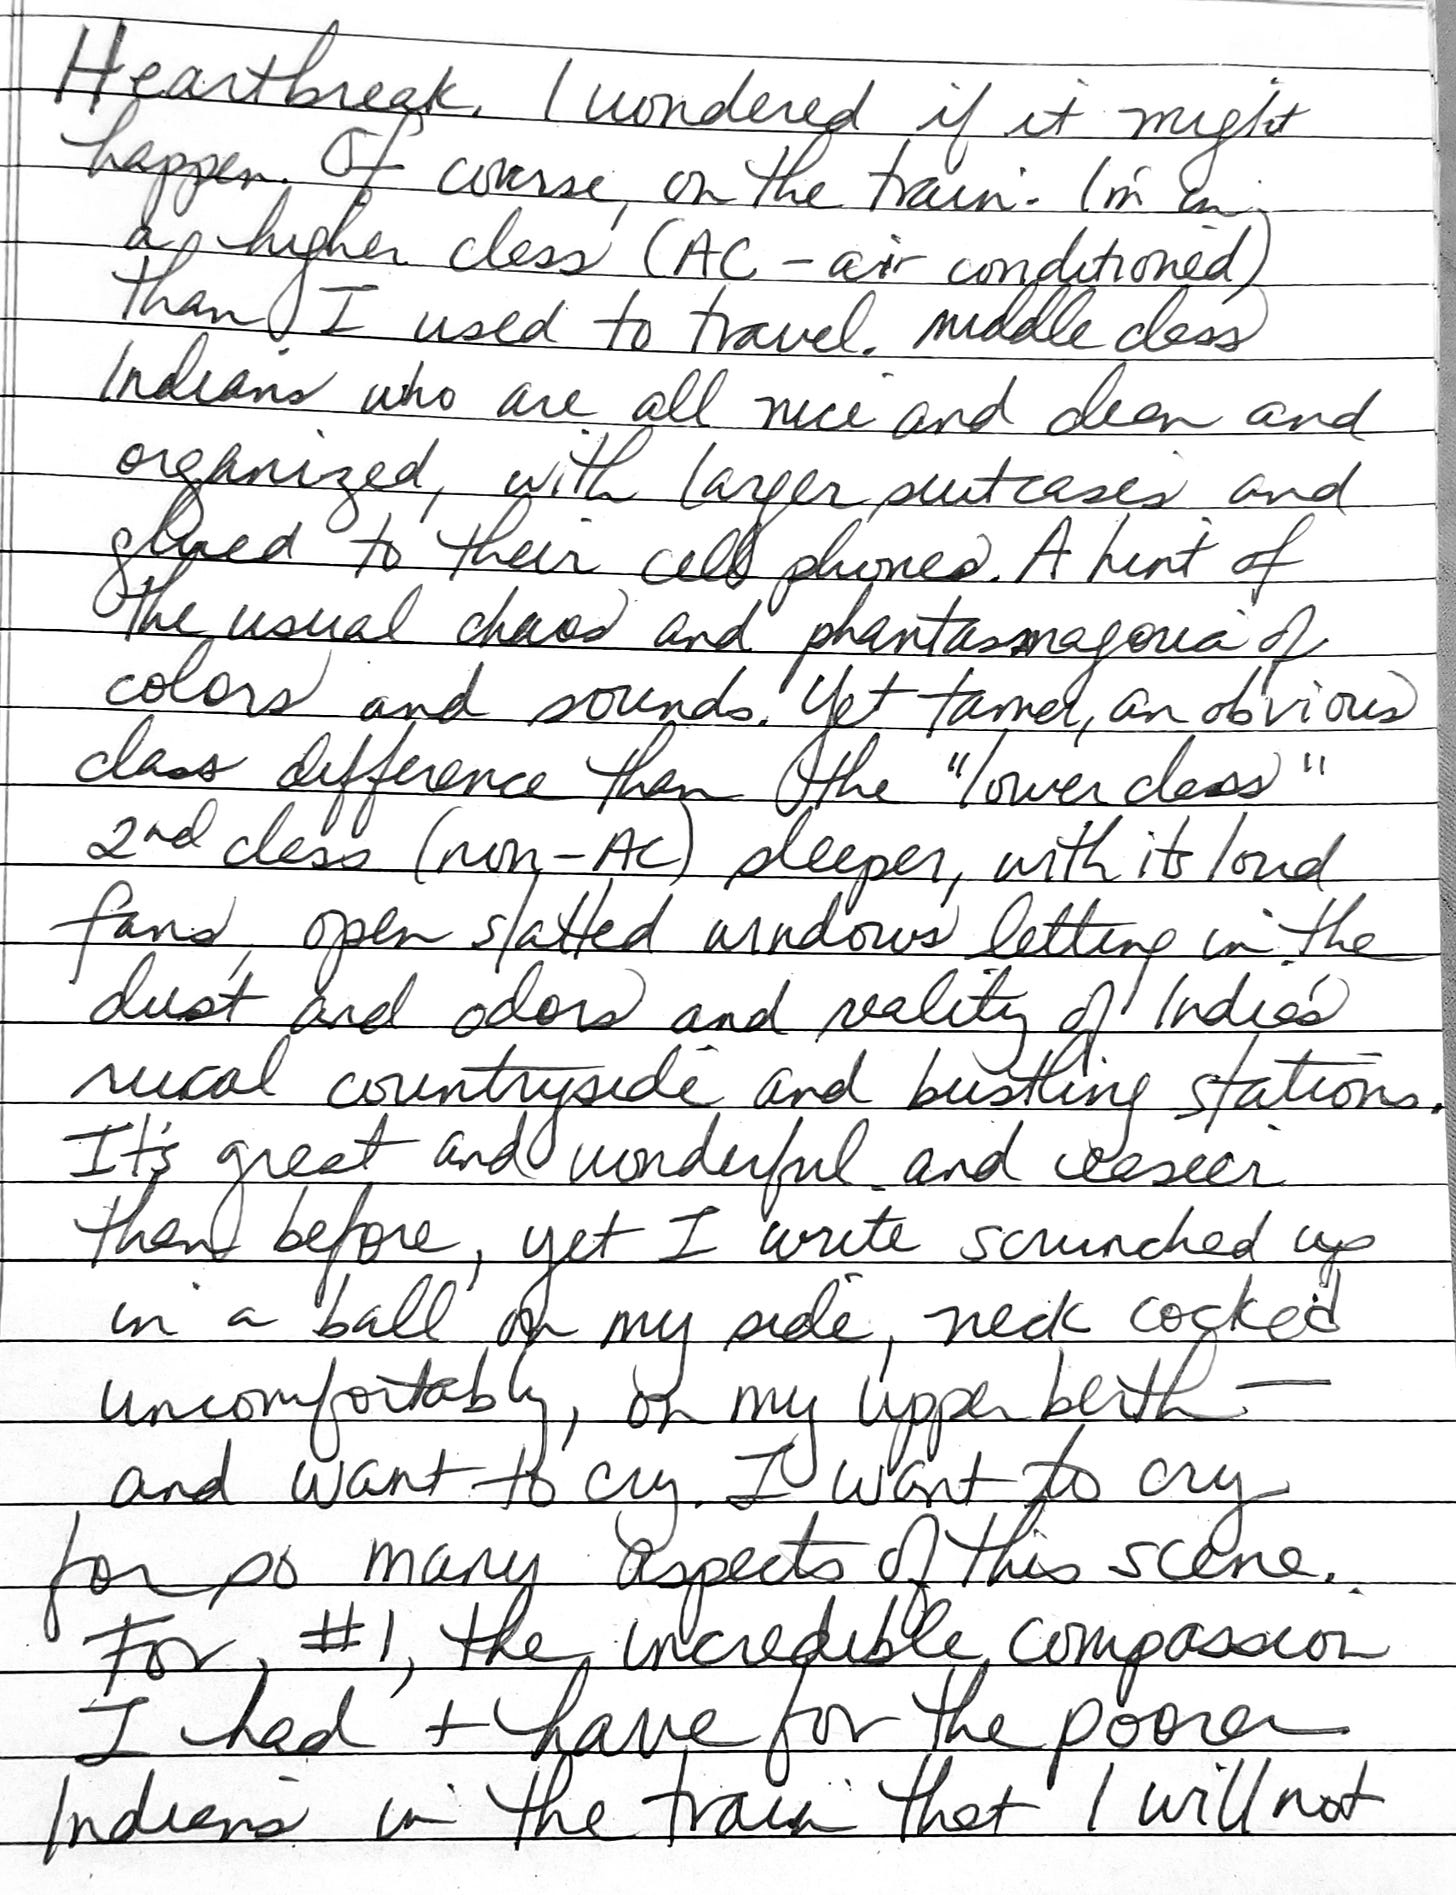 Heartbreak. I wondered if it might
happen. Of course, on the train. I'm in
a higher class (AC - air conditioned)
than I used to travel. Middle class
Indians who are all nice and clean and
organized, with larger suitcases and
glued to their cell phones. A hint of
the usual chaos and phantasmagoria of
colors and sounds. Yet tamer, an obvious
class difference than the "lower class"
2nd class (non-AC) sleeper, with its loud
fans, open slatted windows letting in the
dust and odors and reality of India's
rural countryside and bustling stations.
It's great and wonderful and easier
than before, yet I write scrunched up
in a ball on my side, neck cocked
uncomfortably, on my upper berth —
and want to cry. I want to cry
for so many aspects of this scene.
For, #1, the incredible compassion
I had + have for the poorer
Indians in the train that I will not